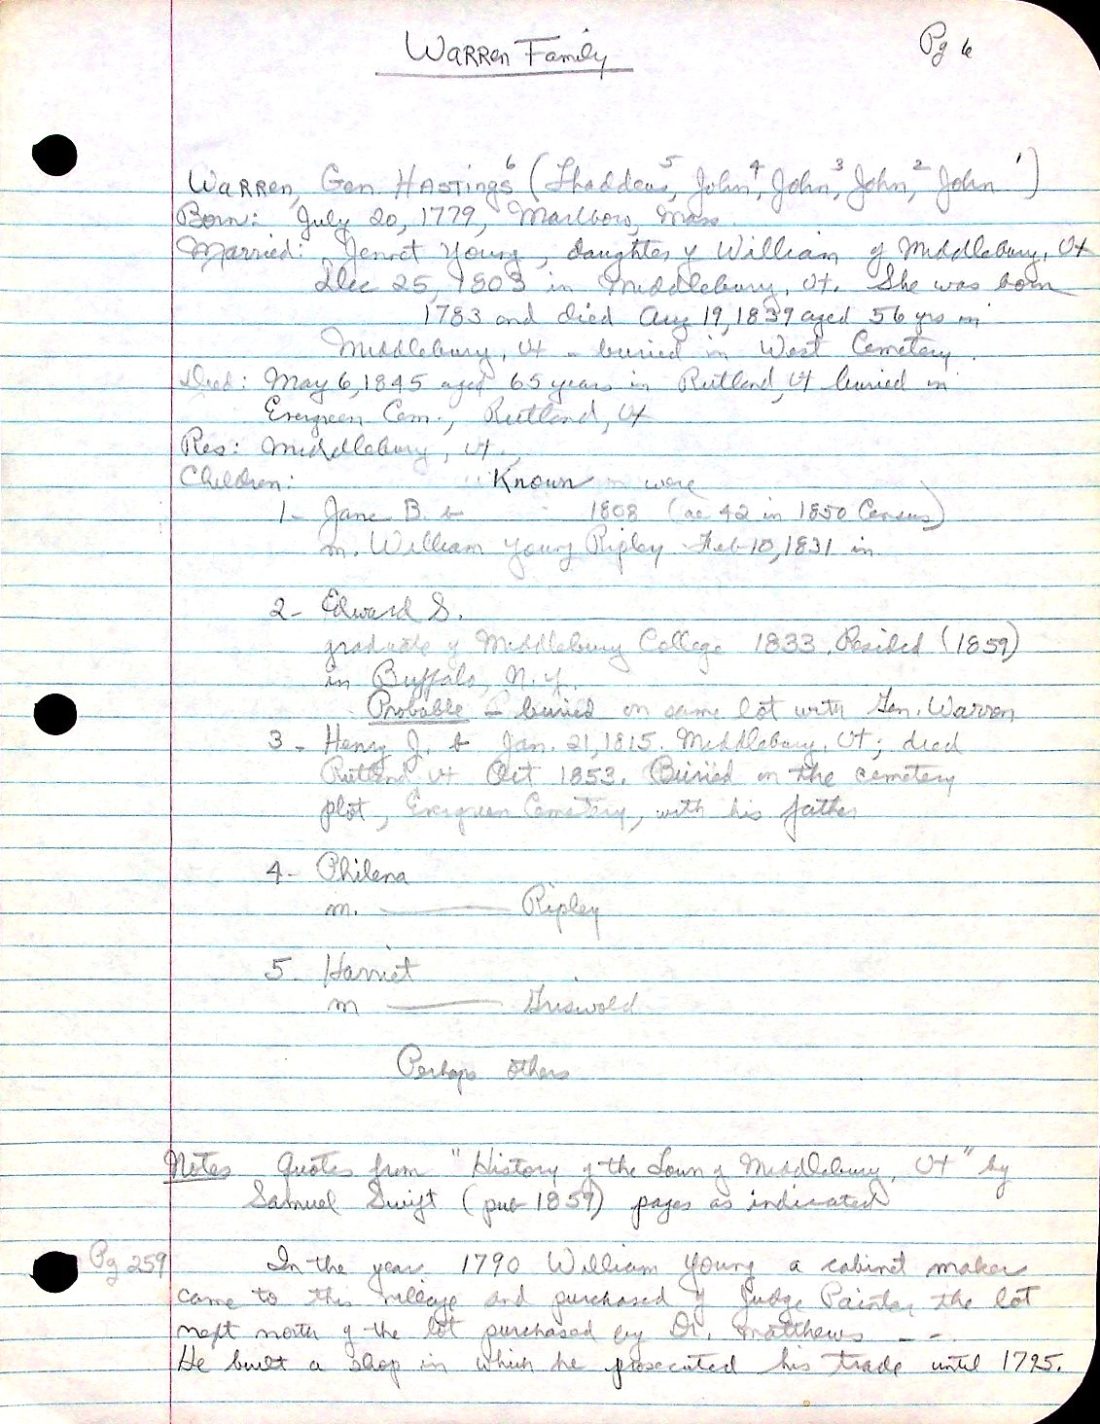 Warren Family
Pg 6
Warren, Gen. Hastings⁶ (Thaddeus,⁵ John,⁴ John,³ John,² John¹)
Born: July 20, 1779, Marlboro, Mass.
Married: Jennet Young, daughter of William of Middlebury, Vt
Dec 25, 1803 in Middlebury, Vt. She was born
1783 and died Aug 19, 1839 aged 56 yrs in
Middlebury, Vt - buried in West Cemetery.
Died: May 6, 1845 aged 65 years in Rutland, Vt buried in
Evergreen Cem., Rutland, Vt
Res: Middlebury, Vt.
Children: Known were
1- Jane B. b 1808 (ae 42 in 1850 Census)
m. William Young Ripley Feb 10, 1831 in
2- Edward S.
graduate of Middlebury College 1833. Resided (1859)
in Buffalo, N.Y.
Probable - buried on same lot with Gen. Warren
3- Henry J. b Jan. 21, 1815. Middlebury, Vt; died
Rutland Vt Oct 1853. Buried in the cemetery
plot, Evergreen Cemetery, with his father
4- Philena
m. ——— Ripley
5. Harriet
m ——— Griswold
Perhaps others
Notes Quotes from "History of the Town of Middlebury, Vt" by
Samuel Swift (pub 1859) pages as indicated
Pg 259 In the year 1790 William Young a cabinet maker
came to this village and purchased of Judge Painter the lot
next north of the lot purchased by Dr. Matthews - -.
He built a shop in which he prosecuted his trade until 1795.